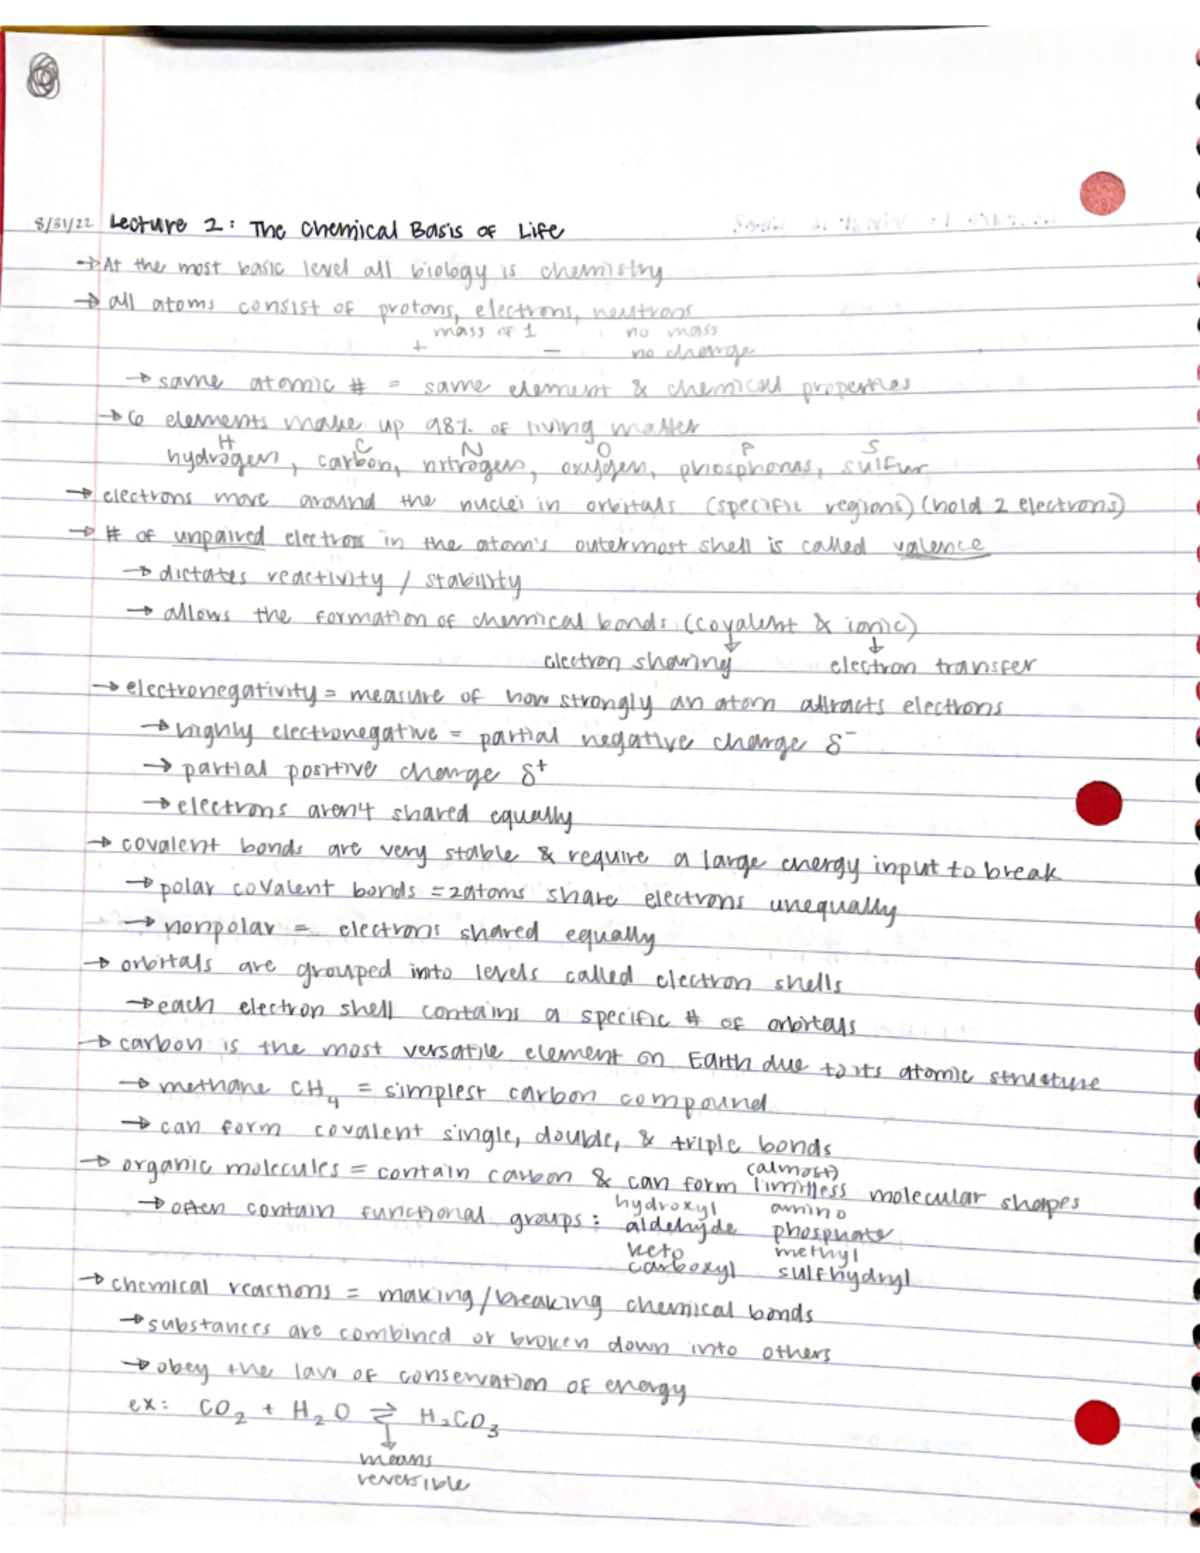 8/31/22 Lecture 2: The Chemical Basis of Life
→ At the most basic level all biology is chemistry
→ all atoms consist of protons, electrons, neutrons
mass of 1 no mass
+ − no charge
→ same atomic # = same element & chemical properties
→ 6 elements make up 98% of living matter
H C N O P S
hydrogen, carbon, nitrogen, oxygen, phosphorus, sulfur
→ electrons move around the nuclei in orbitals (specific regions) (hold 2 electrons)
→ # of unpaired electrons in the atom's outermost shell is called valence
→ dictates reactivity / stability
→ allows the formation of chemical bonds (covalent & ionic)
↓ ↓
electron sharing electron transfer
→ electronegativity = measure of how strongly an atom attracts electrons
→ highly electronegative = partial negative charge δ⁻
→ partial positive charge δ⁺
→ electrons aren't shared equally
→ covalent bonds are very stable & require a large energy input to break
→ polar covalent bonds = 2 atoms share electrons unequally
→ nonpolar = electrons shared equally
→ orbitals are grouped into levels called electron shells
→ each electron shell contains a specific # of orbitals
→ carbon is the most versatile element on Earth due to its atomic structure
→ methane CH₄ = simplest carbon compound
→ can form covalent single, double, & triple bonds
(almost)
→ organic molecules = contain carbon & can form limitless molecular shapes
hydroxyl amino
→ often contain functional groups: aldehyde phosphate
keto methyl
carboxyl sulfhydryl
→ chemical reactions = making/breaking chemical bonds
→ substances are combined or broken down into others
→ obey the law of conservation of energy
ex: CO₂ + H₂O ⇌ H₂CO₃
↓
means
reversible